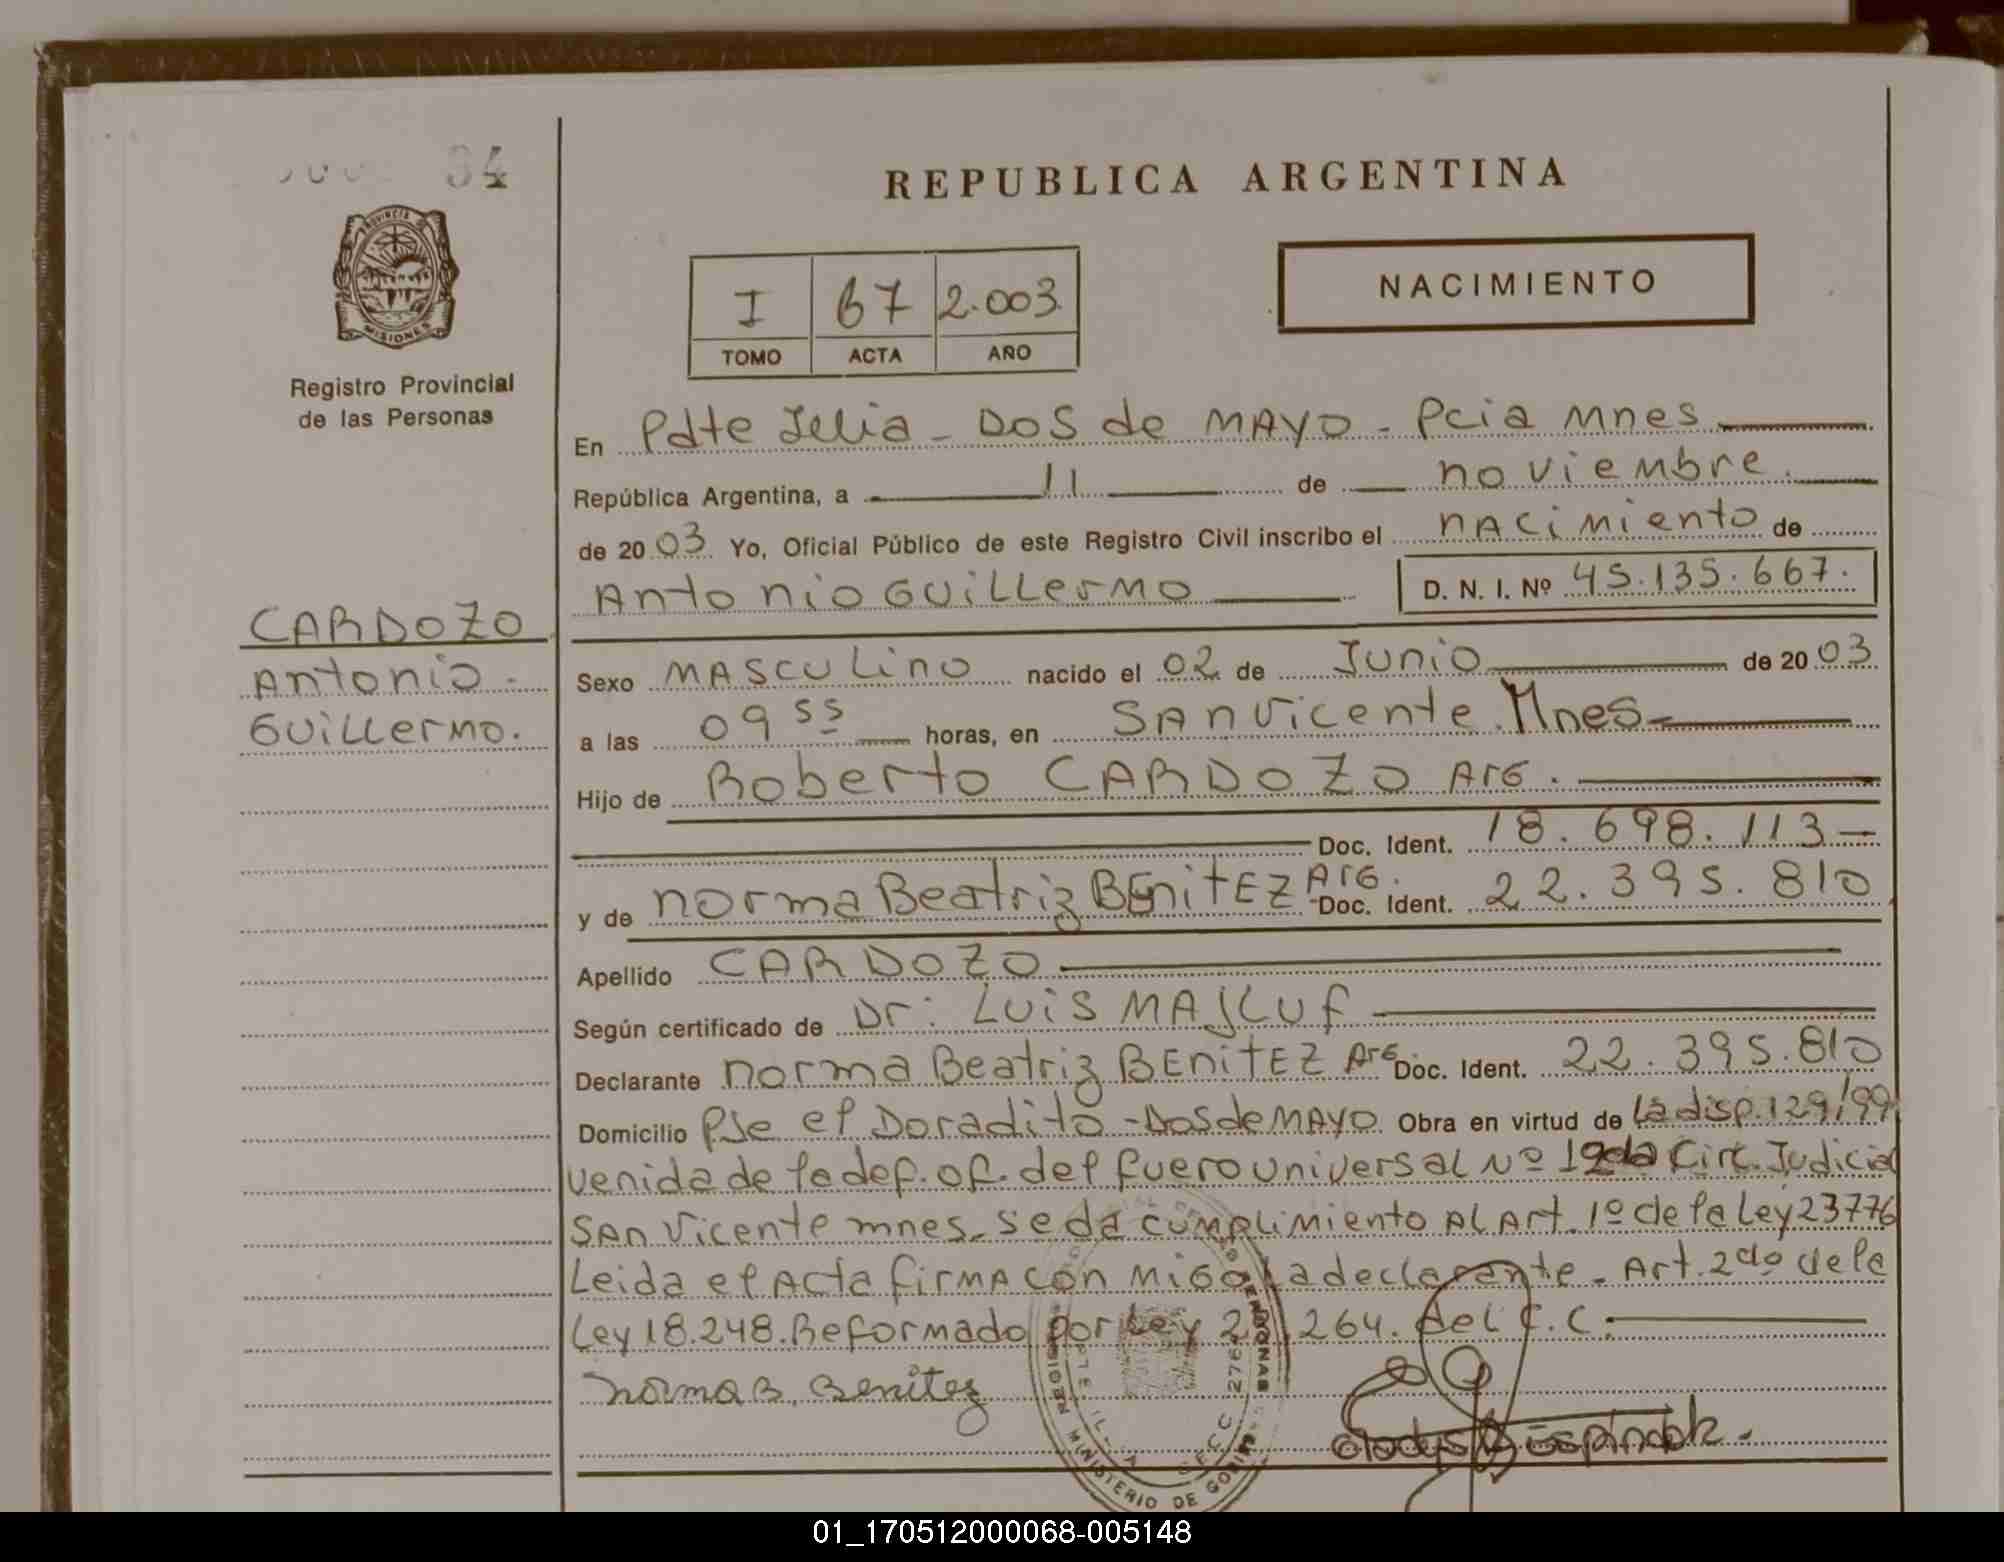 34
REPUBLICA ARGENTINA
PROVINCIA DE MISIONES
NACIMIENTO
I 67 2.003
TOMO ACTA AÑO
Registro Provincial
de las Personas
En Pdte Illia - DOS de MAYO - Pcia Mnes
República Argentina, a 11 de noviembre.
de 2003. Yo, Oficial Público de este Registro Civil inscribo el nacimiento de
Antonio Guillermo D. N. I. Nº 45.135.667.
CARDOZO
Antonio.
Guillermo.
Sexo MASCULino nacido el 02 de Junio de 2003
a las 09 55 horas, en SAn Vicente. Mnes-
Hijo de Roberto CARDOZO Arg.
Doc. Ident. 18.698.113-
y de norma Beatriz BEnitEZ Arg. Doc. Ident. 22.395.810
Apellido CARDOZO
Según certificado de Dr: Luis
Declarante norma Beatriz BEnitEZ Arg Doc. Ident. 22.395.810
Domicilio Pje el Doradito - Dos de MAYO. Obra en virtud de La disp. 129/99
venida de la def. of. del fuero universal Nº 1 2da Circ. Judicial
SAn Vicente mnes. se da cumplimiento AL Art. 1º de la Ley 23776
Leida el Acta firma con migo La declarante - Art. 2do de la
Ley 18.248. Reformado por Ley 264. del C.C.
norma B. Benitez
Gladys Espindola.
MINISTERIO DE GOBIERNO
01_170512000068-005148